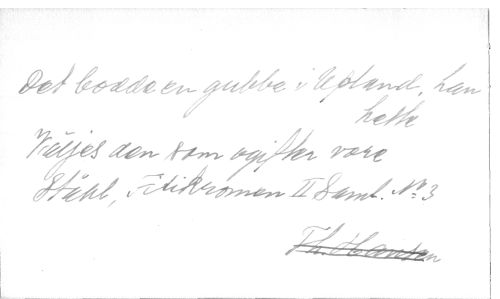 Det bodde en gubbe i Upland, han
hette
Väljes den som ogifter vore
Ståhl, II Saml. Nº 3
Th. Hansen